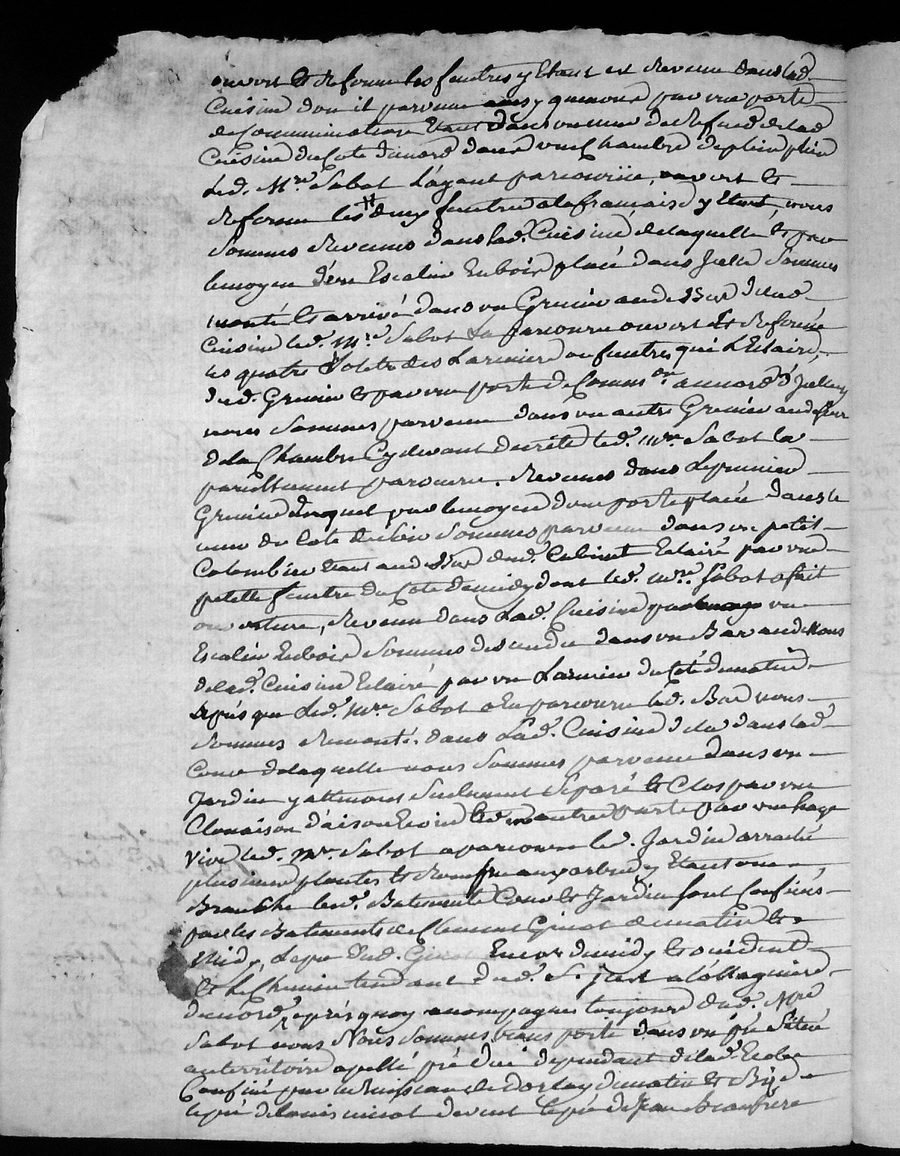 ouvert et refermé les fenetres y Etant est Revenu dans lad.
Cuisine dou il parvenu par une porte
de Communication Etant dans un mur de Refend de lad
Cuisine du Coté dunord dans une Chambre deplein pied
Led. Mre. Sabot L'ayant parcourüe, ouvert et
Refermé les deux fenetres ala francaise y Etant nous
Sommes Revenus dans lad. Cuisine de laquelle et par
lemoyen d'un Escalier En bois placé dans Icelle Sommes
monté et arrivé dans un Grenier audessus de lad
Cuisine led. Mre. Sabot La parcouru ouvert et Refermé
les quatre Volets des Larmiers ou fenetres qui L'Eclaire,
dud. Grenier et par une porte de Common. aunord d'Icelluy
nous Sommes parvenu dans un autre Grenier audessus
de la Chambre Cydevant decrite led. Mre. Sabot la
pareillement parcouru. Revenus dans Lepremier
Grenier Duquel par lemoyen dune porte placée dans le
mur du Coté du Sommes parvenu dans un petit
Colombier Etant audessus dud. Cabinet Eclairé par une
petitte fenetre du Coté demidy dont led. Mre. Sabot afait
ouverture, Revenu dans Lad. Cuisine un
Escalier En bois Sommes descendu dans un Bas audessous
delad. Cuisine Eclairé par un Larmier du Coté dematin
Apres que Led. Mre Sabot a Eu parcouru led. Bas nous
Sommes Remonté dans Lad. Cuisine dela dans lad
Cour delaquelle nous Sommes parvenu dans un
Jardin yattenant Seulement Séparé et Clos par une
Clouaison autre parte par une haye
vive led. Mre. Sabot a parcouru led. Jardin arraché
plusieurs plantes et aux arbres y Etant une
Branche led. Batiments Cour et Jardin Sont Confinés
par les Batiments de Clement Ginot de matin et
Midy Le pré dud. Ginot Encor de midy et occident
et Le Chemin tendant dud. S. just a
dunord, apres quoy accompagnes toujours dud. Mre
Sabot nous Nous Sommes transporté dans un pré Situé
auterritoire apellé pré dependant delad. Ecole
Confiné par le Ruisseau de dorlay de matin et Bize
lepré de Ginot devent lepré de Jean